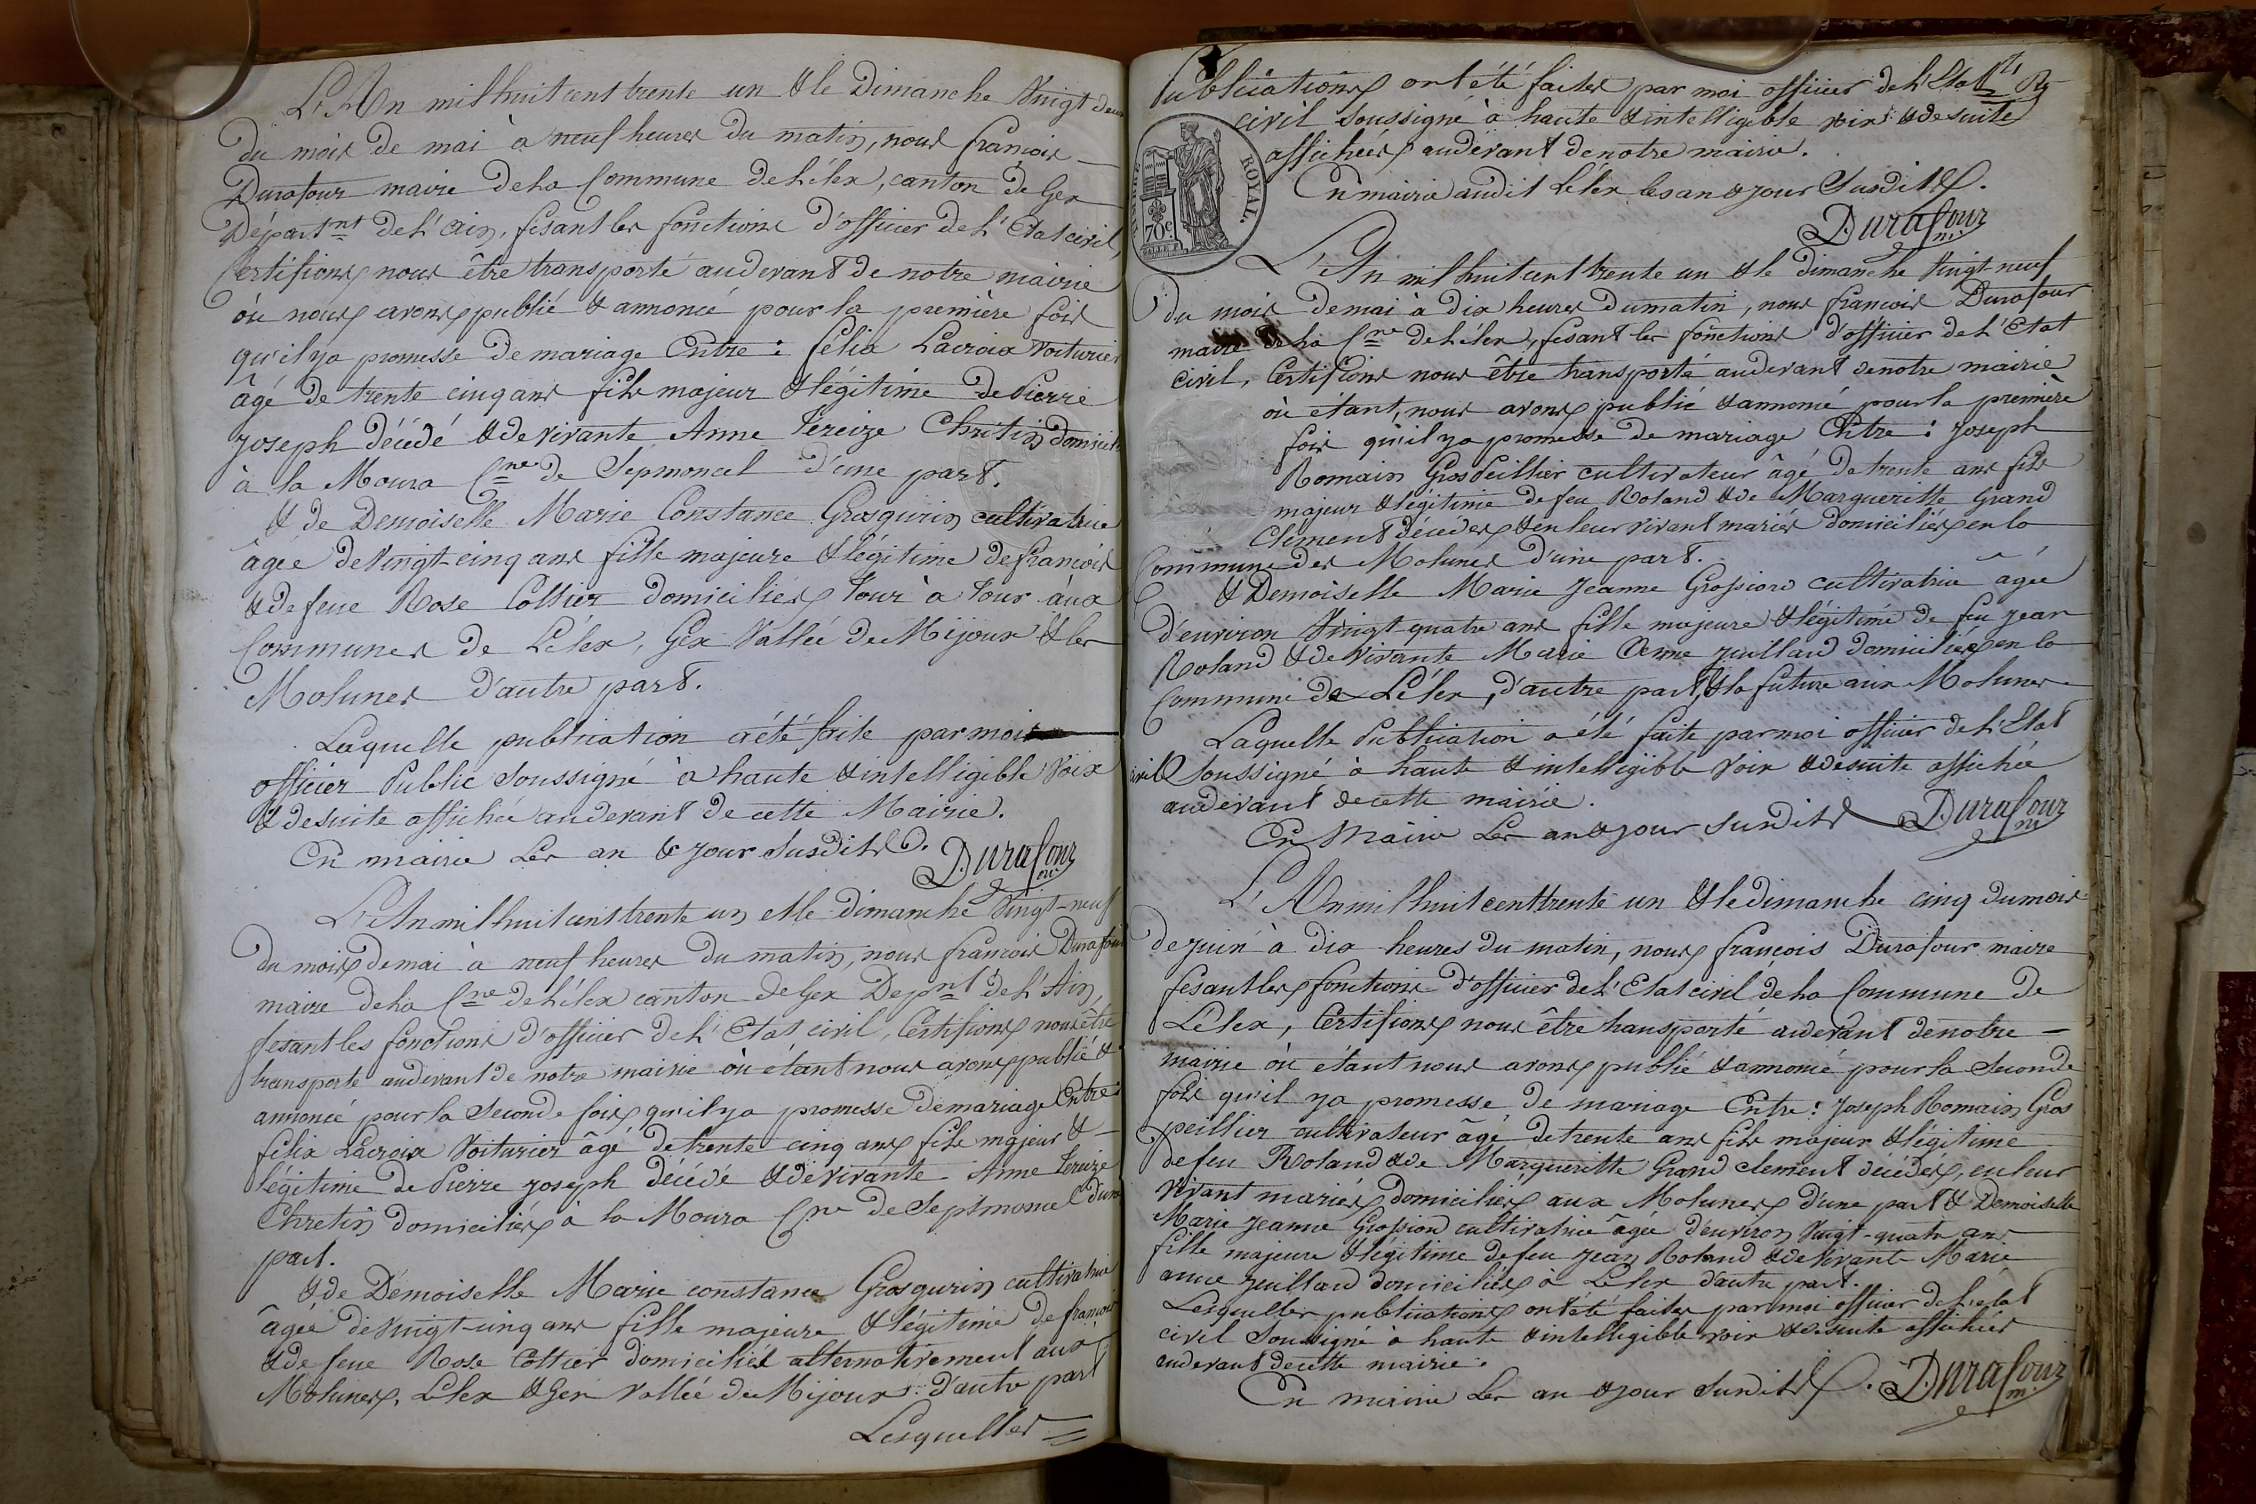 L'An mil huit cent trente un & le Dimanche Vingt deux
du mois de mai à neuf heures du matin, nous francois
Durafour maire de la Commune de Lélex, canton de Gex
Départnt de L'ain, fesant les fonctions d'officier de L'Etat civil,
Certifions nous être transporté audevant de notre mairie
où nous avons publié & annoncé pour la première fois
qu'il ya promesse de mariage Entre : félix Lacroix Voiturier
âgé de trente cinq ans fils majeur & légitime de Pierre
joseph décédé & de vivante Anne Téreize Chrétin domiciliés
à la Moura Cne de Sepmoncel d'une part.
& de Demoiselle Marie Constance Grosgurin cultivatrice
âgée de Vingt-cinq ans fille majeure & légitime de francois
& de feue Rose Cottier domiciliés tour à tour aux
Communes de Lélex, Gex Vallée de Mijoux & les
Molunes d'autre part.
Laquelle publication a été faite par moi
officier Public Soussigné à haute & intelligible Voix
& desuite affichée audevant de cette Mairie.
En mairie Les an & jour Susdits.
Durafour m.
L'An mil huit cent trente un et le dimanche Vingt-neuf
du mois de mai à neuf heures du matin, nous francois Durafour
maire de la Cne de Lélex canton de Gex Depnt de L'Ain,
fesant les fonctions d'officier de L'Etat civil, Certifions nous être
transporté audevant de notre mairie où étant nous avons publié &
annoncé pour la Seconde fois qu'il ya promesse de mariage Entre :
félix Lacroix Voiturier âgé de trente cinq ans fils majeur &
légitime de Pierre joseph décédé & de vivante Anne Tereize
Chretin domiciliés à la Moura Cne de Septmoncel d'une
part.
& de Demoiselle Marie constance Grosgurin cultivatrice
âgée de vingt-cinq ans fille majeure & légitime de francois
& de feue Rose Cottier domiciliés alternativement aux
Molunes, Lélex & Gex Vallée de Mijoux : d'autre part
Lesquelles
Publications ont été faites par moi officier de L'Etat
civil Soussigné à haute & intelligible voix & desuite
affichées audevant de notre mairie.
En mairie audit Lélex les an & jour Susdits.
ROYAL.
70c
Durafour m.
L'An mil huit cent trente un & le dimanche Vingt-neuf
du mois de mai à dix heures du matin, nous francois Durafour
maire de la Cne de Lélex, fesant les fonctions d'officier de L'Etat
civil, Certifions nous être transporté audevant de notre mairie
où étant, nous avons publié & annoncé pour la première
fois qu'il ya promesse de mariage Entre : joseph
Romain GrosPeillier cultivateur âgé de trente ans fils
majeur & légitime de feu Roland & de Margueritte Grand
Clément décédés & en leur vivant mariés domiciliés en la
Commune des Molunes d'une part.
& Demoiselle Marie Jeanne Grossiord cultivatrice âgée
d'environ Vingt quatre ans fille majeure & légitime de feu jean
Roland & de Vivante Marie Anne juilland domiciliés en la
Commune de Lélex, d'autre part, & la future aux Molunes
Laquelle Publication a été faite par moi officier de L'Etat
civil Soussigné à haute & intelligible Voix & desuite affichée
audevant de cette mairie.
En Mairie Les an & jour Susdits Durafour m
L'An mil huit cent trente un & le dimanche cinq du mois
de juin à dix heures du matin, nous francois Durafour maire
fesant les fonctions d'officier de L'Etat civil de la Commune de
Lélex, Certifions nous être transporté audevant de notre
mairie où étant nous avons publié & annoncé pour la Seconde
fois qu'il ya promesse de mariage Entre : joseph Romain Gros
peillier cultivateur âgé de trente ans fils majeur & légitime
de feu Roland & de Margueritte Grand clement décédés, en leur
vivant mariés domiciliés aux Molunes d'une part & Demoiselle
Marie jeanne Grossiord cultivatrice âgée d'environ Vingt-quatre ans
fille majeure & légitime de feu jean Roland & de Vivante Marie
anne juilland domiciliés à Lélex d'autre part.
Lesquelles publications ont été faites par moi officier de L'etat
civil Soussigné à haute & intelligible voix & desuite affichées
audevant de cette mairie.
En mairie Les an & jour Susdits. Durafour m.